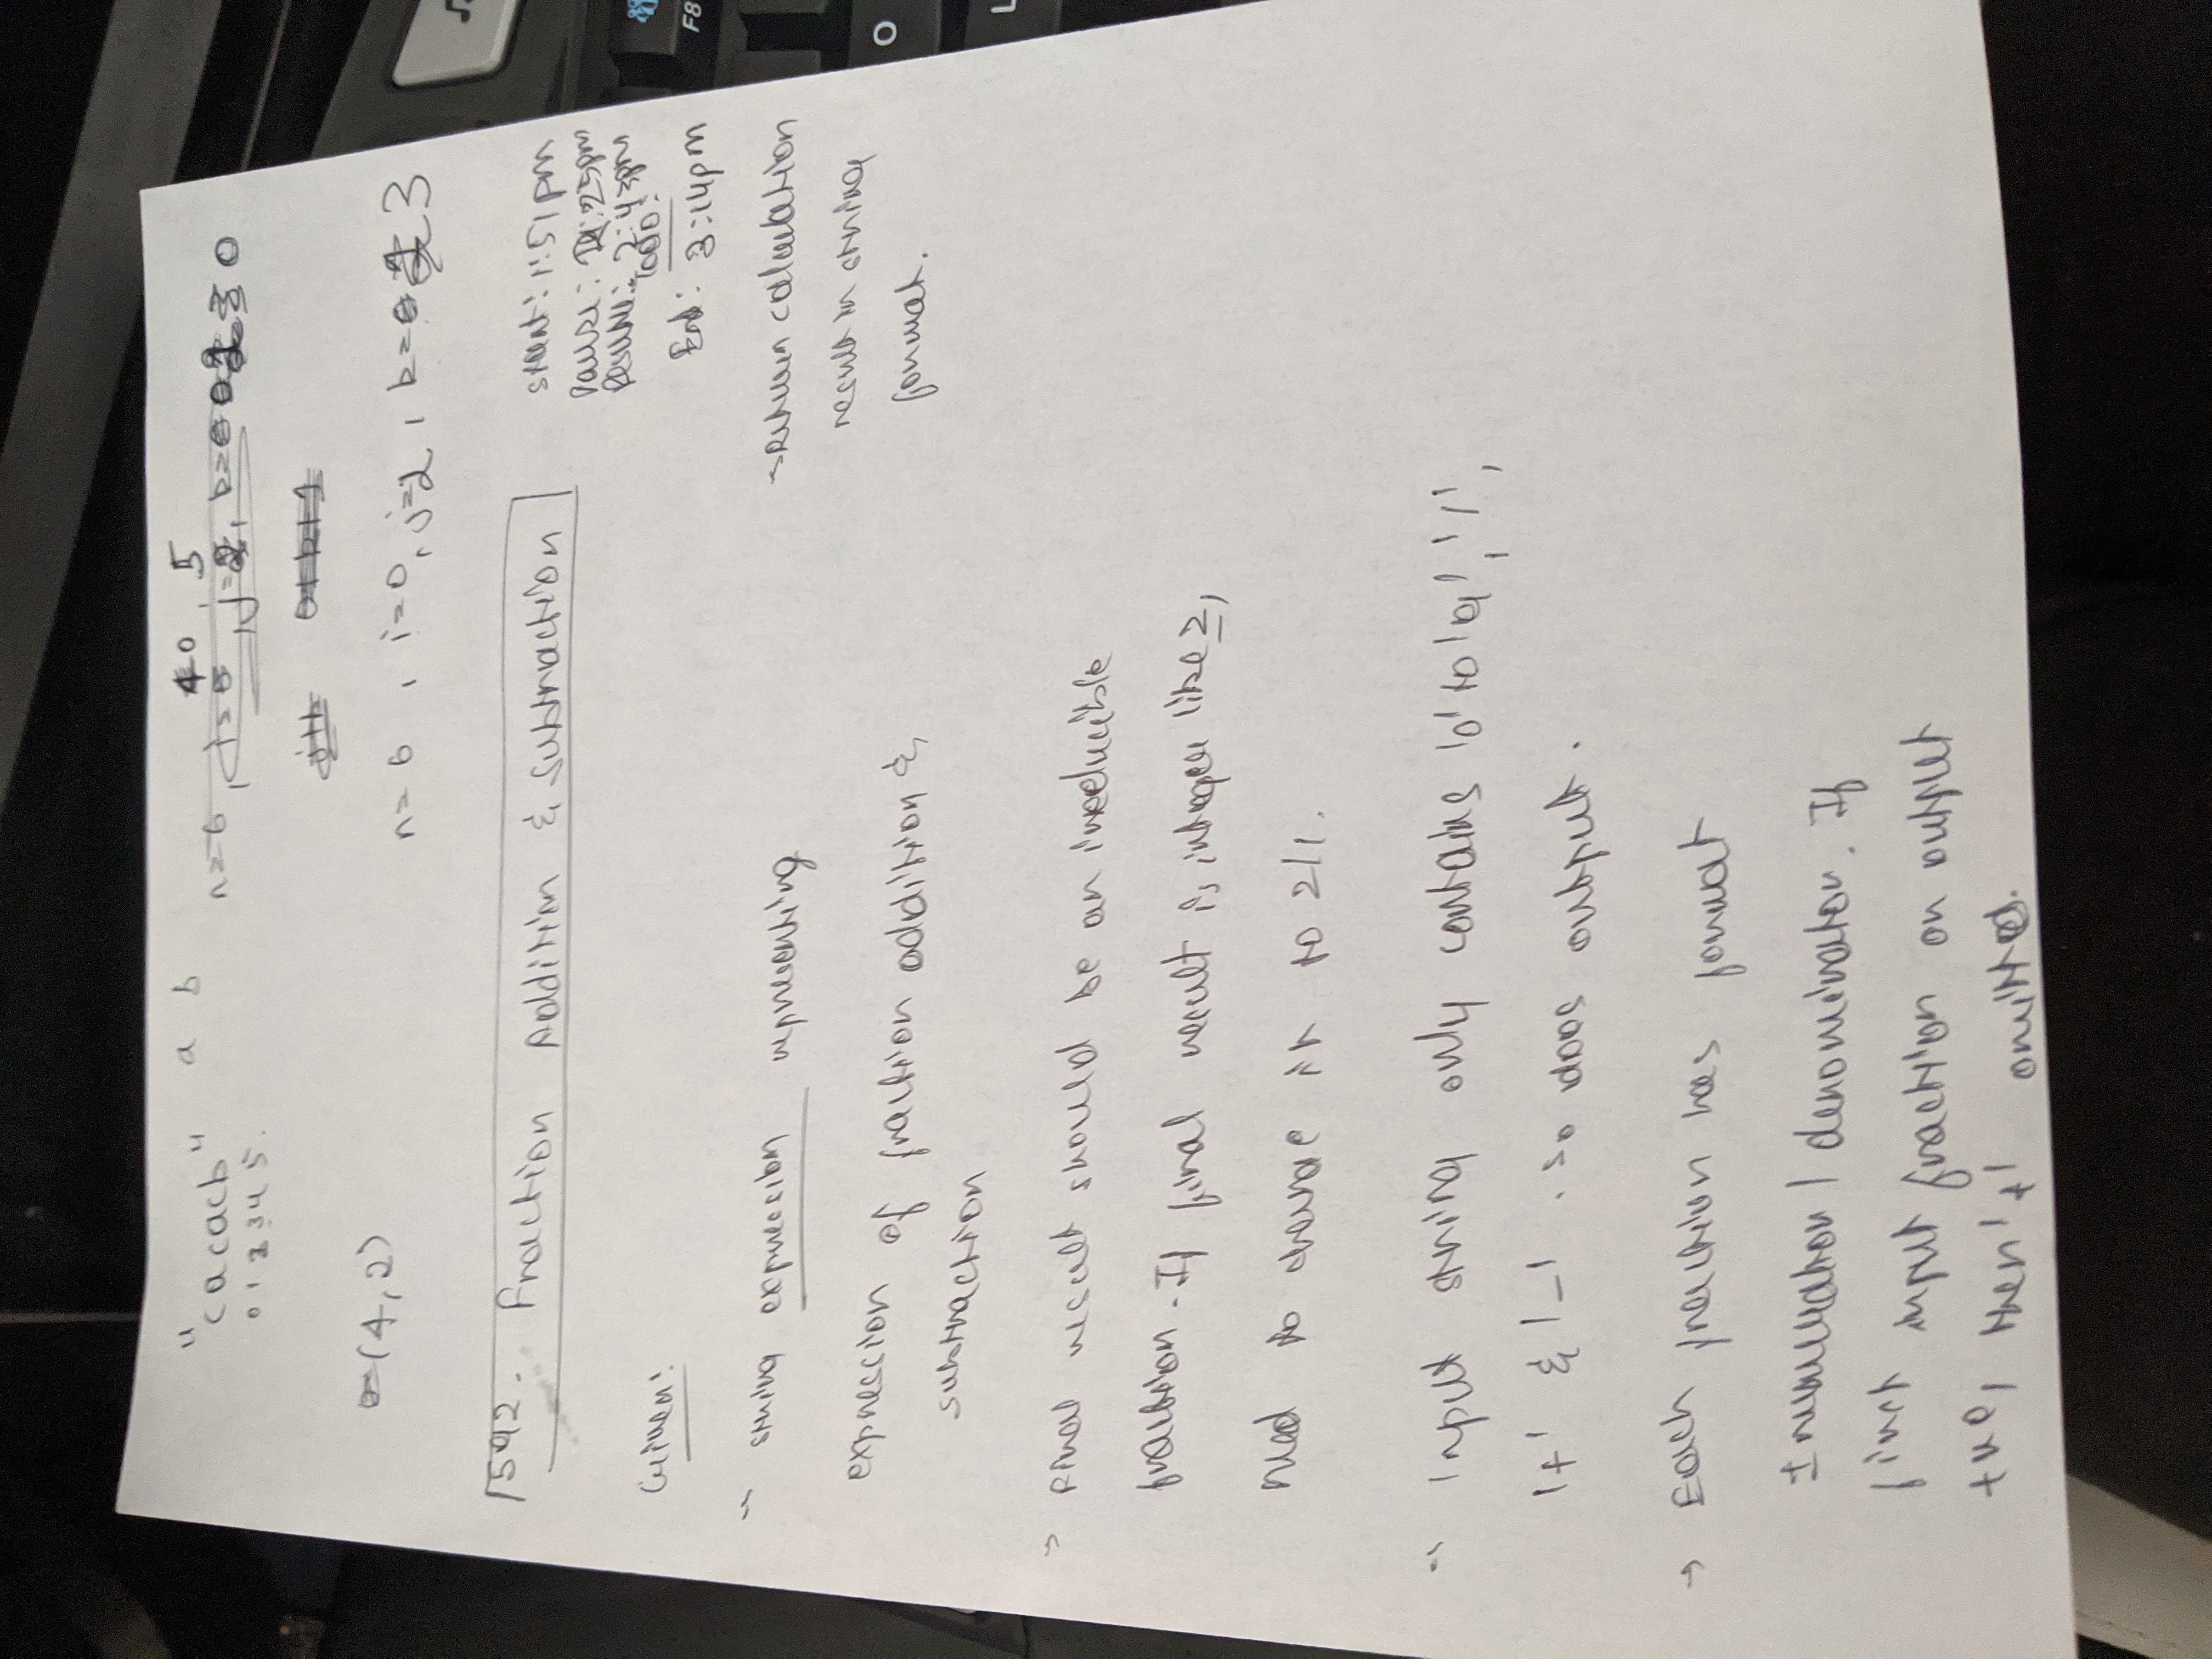 "cacacb" a b
0 1 2 3 4 5.
40, 5
n=6, i=0, j=2, k= 0
j+k 0+k+1
(4,2)
n=6, i=0, j=2, k= 3
592. Fraction Addition & Subtraction
start: 1:51pm
Pause: :25pm
Resume: 2:43pm
End: 3:14pm
Given:
string expression representing
expression of fraction addition &
subtraction
→ Return calculation
result in string
format.
→ Final result should be an irreducible
fraction. If final result is integer like 2,
need to change it to 2/1.
→ Input string only contains '0' to '9', '/',
'+' & '-'. so does output.
→ Each fraction has format
± numerator / denominator. If
first input fraction or output
+ve, then '+' omitted.
F8
O
L